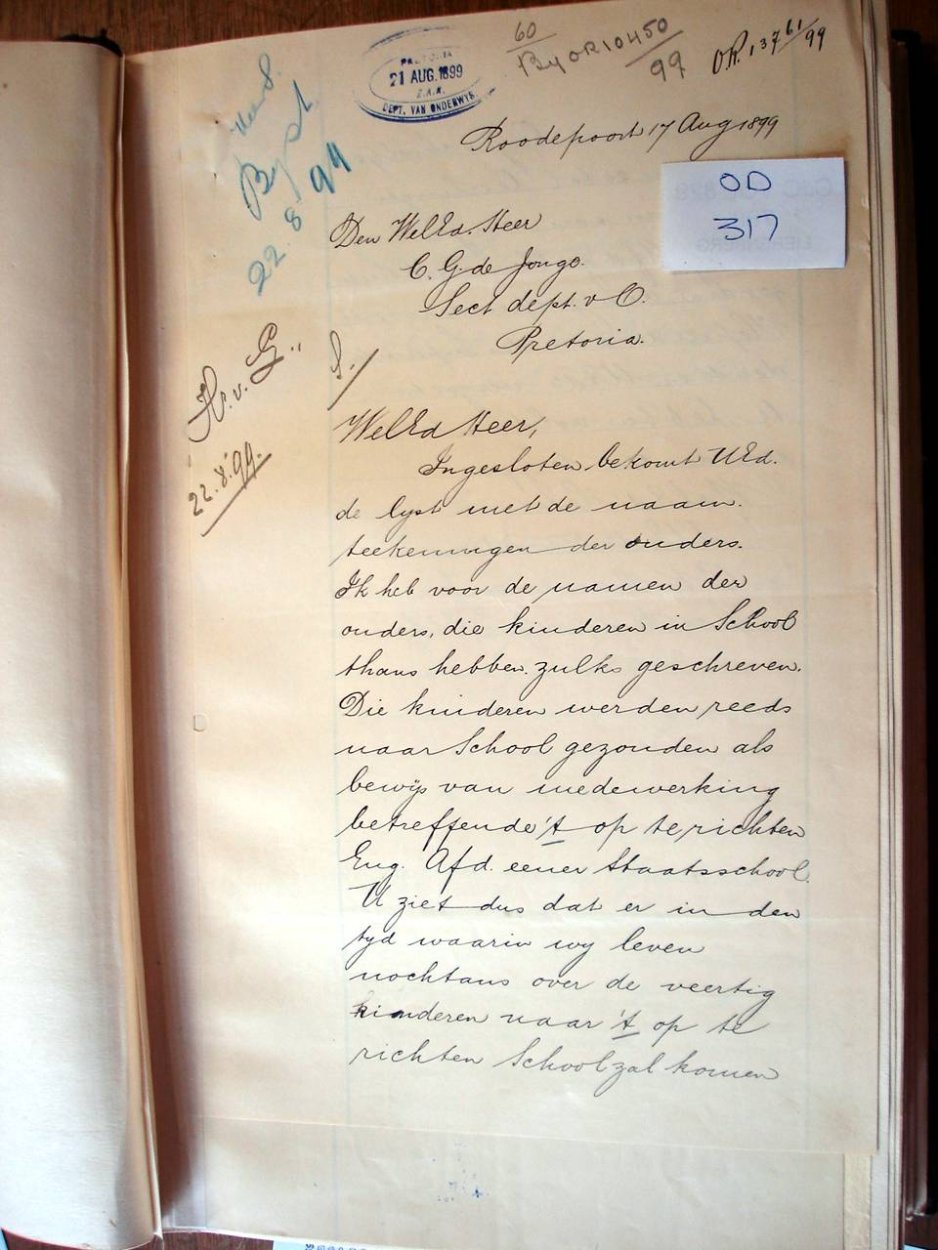 60
By OR10450/99
O.R. 13761/99
PRETORIA
21 AUG. 1899
Z.A.R.
DEPT. VAN ONDERWYS.
Bylt
22.8 99
Roodepoort 17 Aug 1899
OD
317
Den WelEd. Heer
C. G. de Jonge.
Sect dept. v O.
Pretoria.
H. v. G.,
22.8.99.
S./
WelEd Heer,
Ingesloten bekomt UEd.
de lyst met de naam-
teekeningen der ouders.
Ik heb voor de namen der
ouders, die kinderen in School
thans hebben zulks geschreven.
Die kinderen werden reeds
naar School gezonden als
bewijs van medewerking
betreffende 't op te richten
Eng. Afd. eener Staatsschool.
U ziet dus dat er in den
tyd waarin wy leven
nochtans over de veertig
kinderen naar 't op te
richten School zal komen